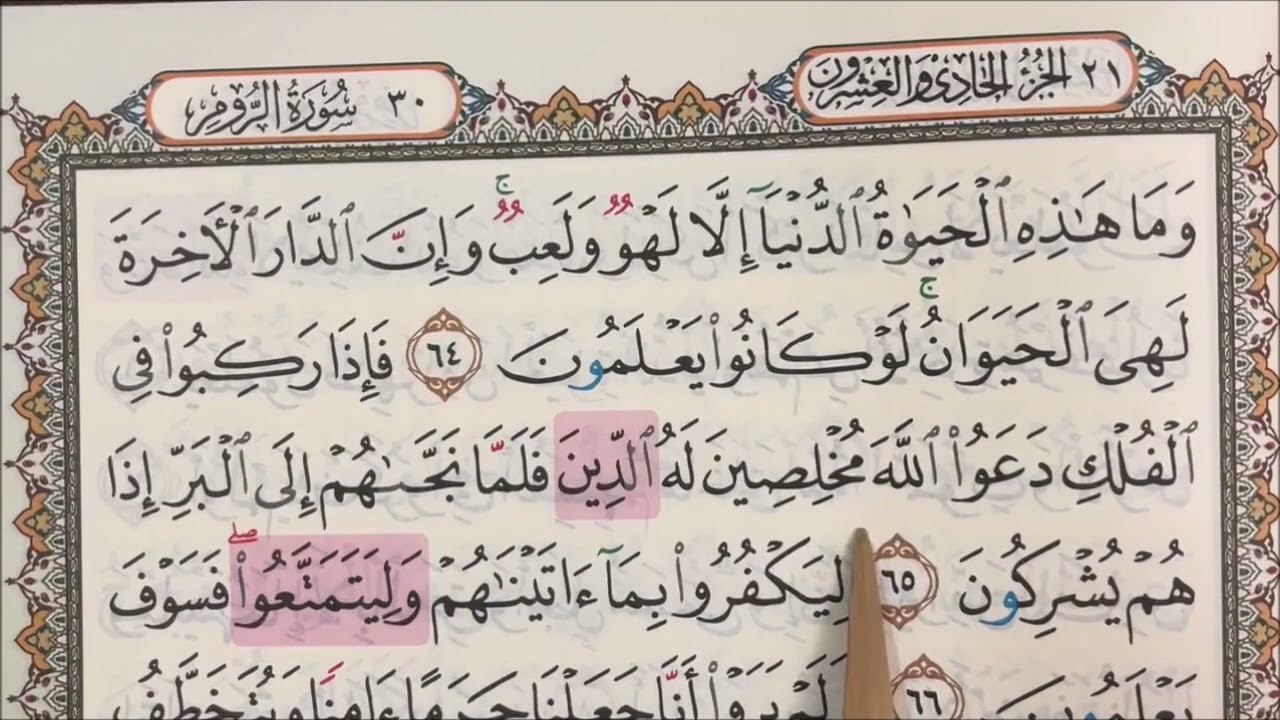 ٢١ الجُزْءُ الحَادِي وَالعِشْرُونَ
٣٠ سُورَةُ الرُّومِ
وَمَا هَٰذِهِ ٱلْحَيَوٰةُ ٱلدُّنْيَآ إِلَّا لَهْوٌ وَلَعِبٌ ۚ وَإِنَّ ٱلدَّارَ ٱلْأَخِرَةَ
لَهِىَ ٱلْحَيَوَانُ ۚ لَوْ كَانُوا۟ يَعْلَمُونَ ٦٤ فَإِذَا رَكِبُوا۟ فِى
ٱلْفُلْكِ دَعَوُا۟ ٱللَّهَ مُخْلِصِينَ لَهُ ٱلدِّينَ فَلَمَّا نَجَّىٰهُمْ إِلَى ٱلْبَرِّ إِذَا
هُمْ يُشْرِكُونَ ٦٥ لِيَكْفُرُوا۟ بِمَآ ءَاتَيْنَٰهُمْ وَلِيَتَمَتَّعُوا۟ ۖ فَسَوْفَ
يَعْلَمُونَ ٦٦ يَرَوْا۟ أَنَّا جَعَلْنَا حَرَمًا ءَامِنًا وَيُتَخَطَّفُ